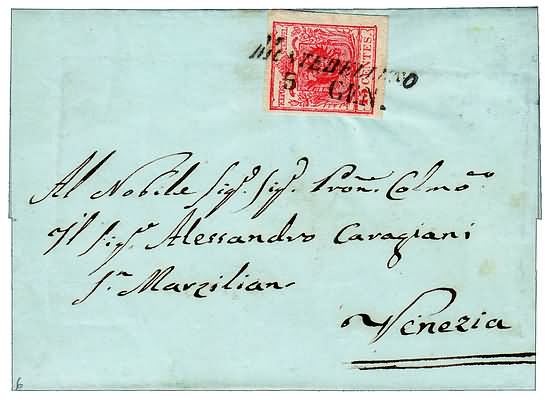 CENTES.
GEN.
Al Nobile Sigr. Sigr. Pron̄. Colmo.
Il Sigr. Alessandro Caragiani
Sn. Marzilian
Venezia
6